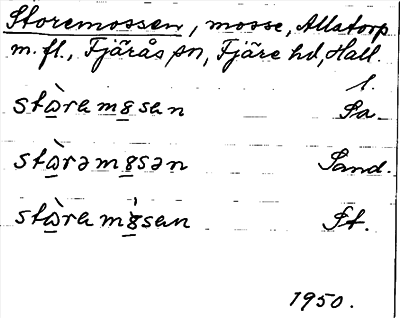 Storemossen, mosse, Allatorp
m.fl., Fjärås sn, Fjäre hd, Hall.
l.
stὼram8san Sa.
stὼrəm8sən Sand.
stὼram8̀san St.
1950.